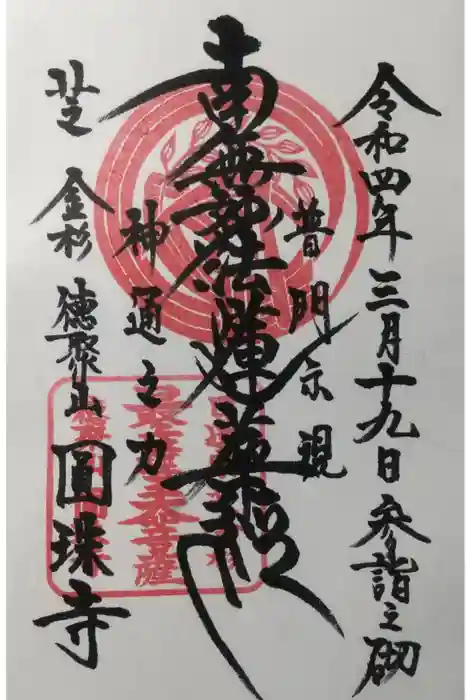 令和四年三月十九日参詣之砌
普門示現
南無妙法蓮華経
神通之力
芝金杉
徳聚山圓珠寺